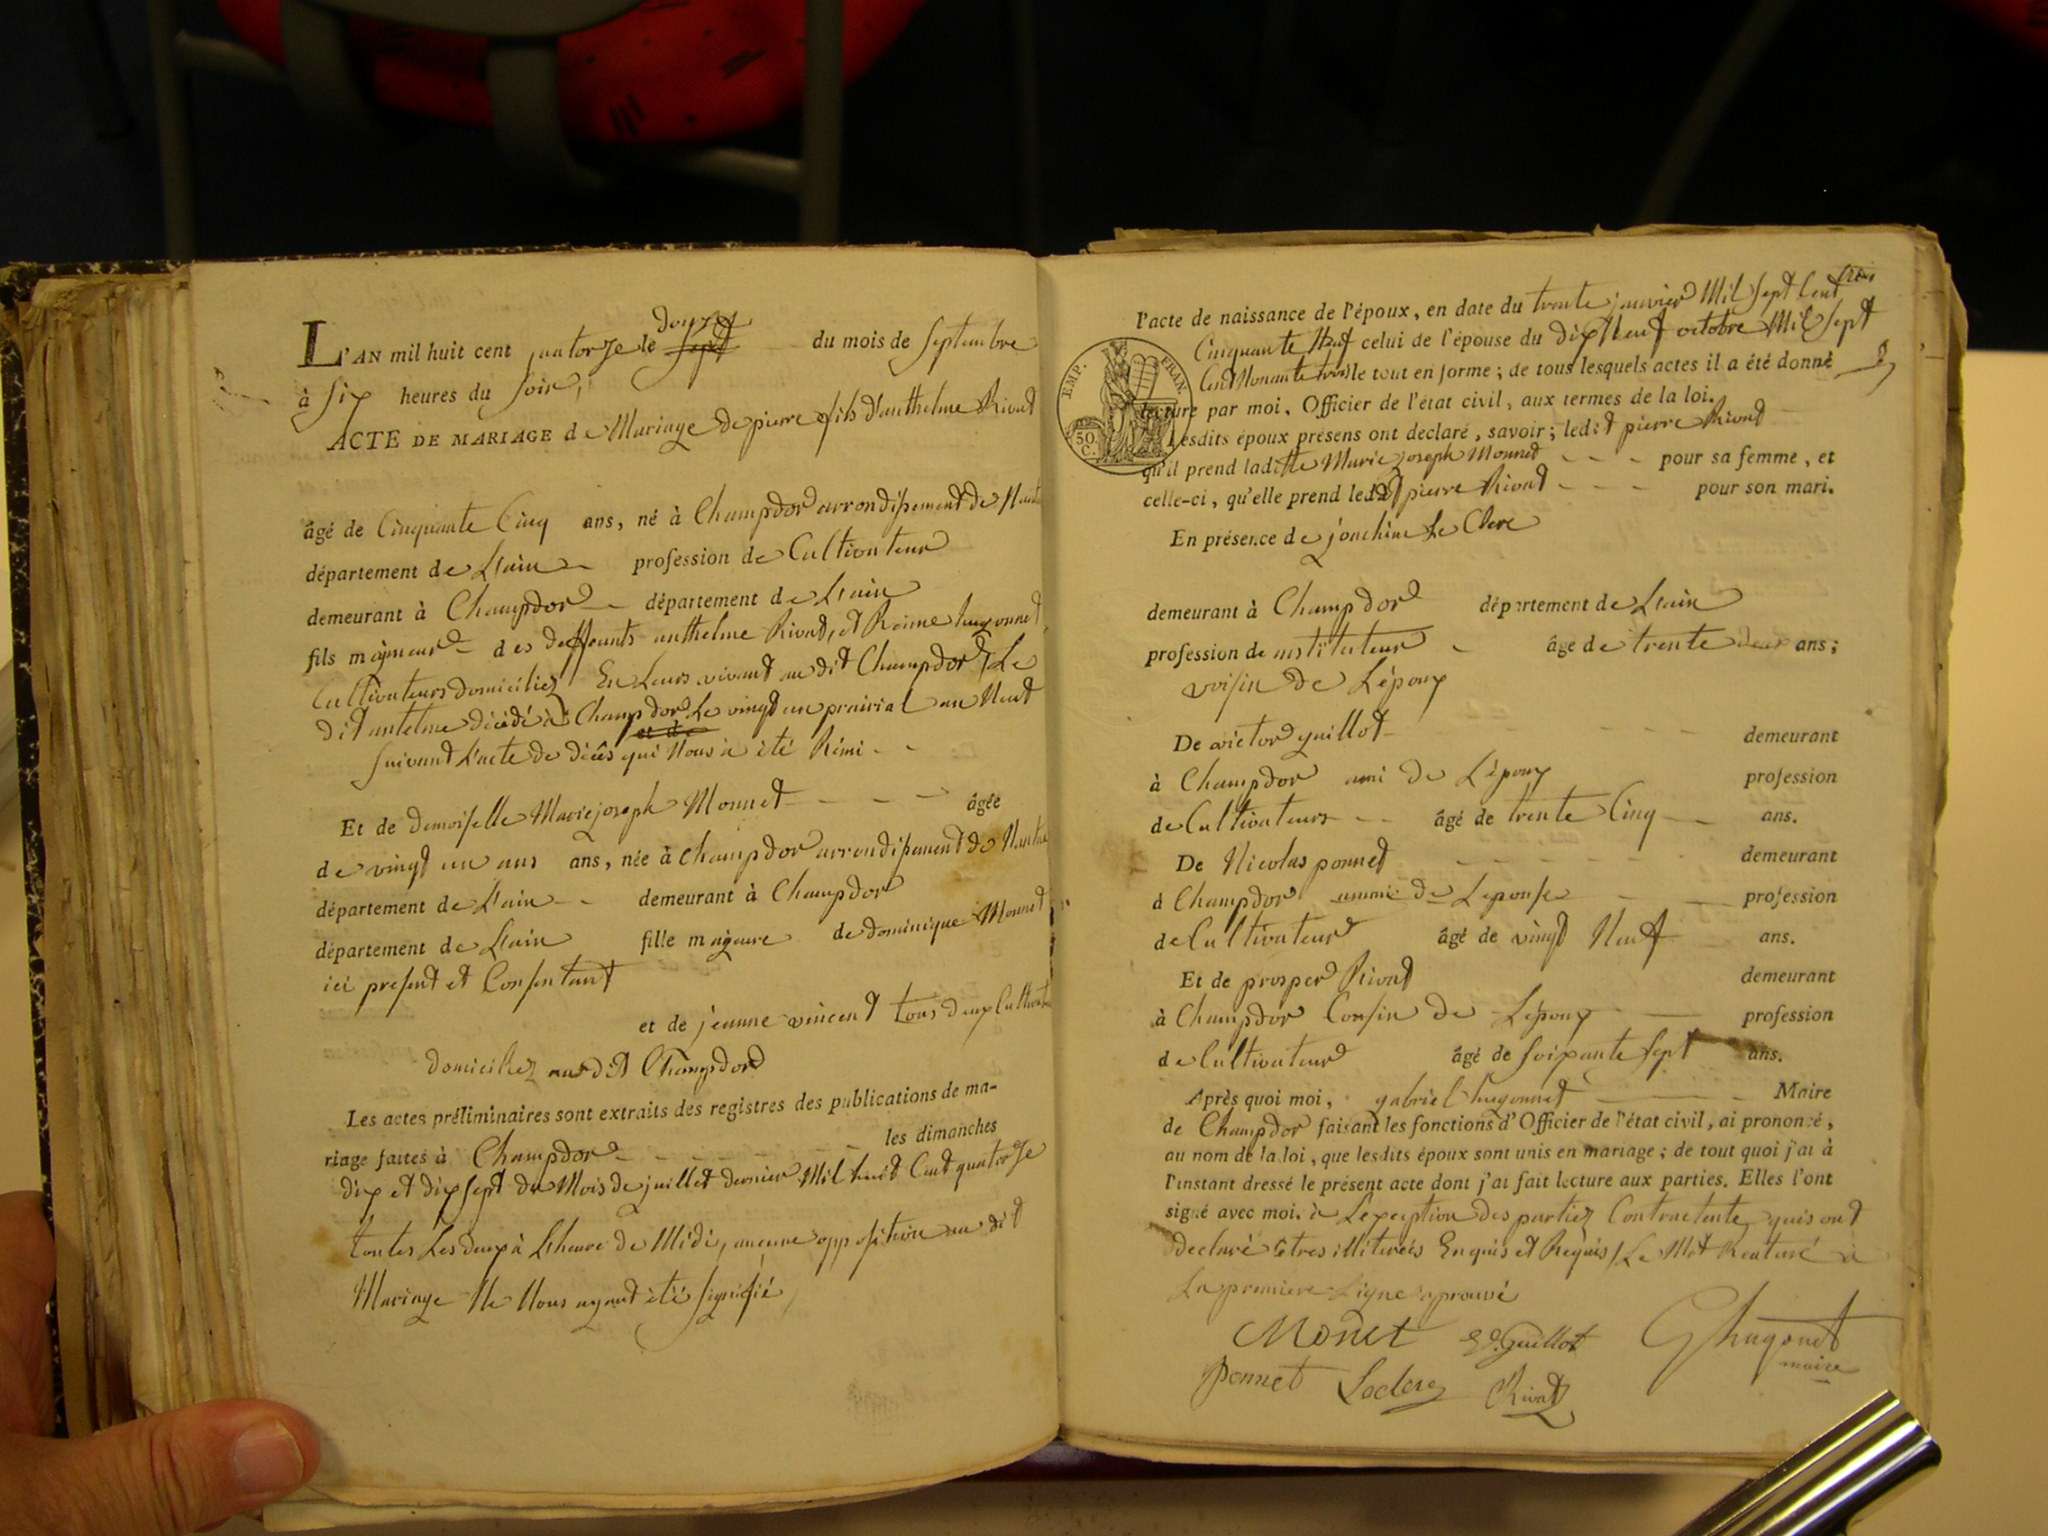 L'AN mil huit cent quatorze le douze sept du mois de Septembre
à Six heures du Soir,
ACTE DE MARIAGE de Mariage de pierre fils d'anthelme Rivat
âgé de Cinquante Cinq ans, né à Champdor arrondissement de Nantu
département de L'ain profession de Cultivateur
demeurant à Champdor département de L'ain
fils majeur des deffeunts anthelme Rivat, et Reine hugonnet,
Cultivateurs domiciliez En Leurs vivant au dit Champdor / Le
dit antelme décédé à Champdor Le vingt un prairial an Neuf
et de
Suivant L'acte de décès qui Nous à été Rémi
Et de demoiselle Marie joseph Monnet âgée
de vingt un ans ans, née à Champdor arrondissement de Nantua
département de L'ain demeurant à Champdor
département de L'ain fille majeure de dominique Monnet
ici present et Consentant
et de jeanne vincent tous deux Cultivate
domiciliez au dit Champdor
Les actes préliminaires sont extraits des registres des publications de ma-
riage faites à Champdor les dimanches
dix et dix Sept du Mois de juillet dernier Mil huit Cent quatorze
toutes Les deux à L'heure de Midi, aucune opposition au dit
Mariage Ne Nous ayant été Signifié,
l'acte de naissance de l'époux, en date du trente janvier Mil Sept Cent
Cinquante Neuf celui de l'épouse du dix Neuf octobre Mil Sept
Cent Nonante trois le tout en forme ; de tous lesquels actes il a été donné
lecture par moi, Officier de l'état civil, aux termes de la loi.
EMP. FRAN.
50. C.
Lesdits époux présens ont déclaré, savoir ; ledit pierre Rivat
qu'il prend ladite Marie joseph Monnet pour sa femme, et
celle-ci, qu'elle prend ledit pierre Rivat pour son mari.
En présence de joachim Le Clerc
demeurant à Champdor département de L'ain
profession de institeteur âgé de trente deux ans ;
voisin de L'époux
De victor guillot demeurant
à Champdor ami de L'époux profession
de Cultivateurs âgé de trente Cinq ans.
De Nicolas ponnet demeurant
à Champdor ammi de L'epouse profession
de Cultivateur âgé de vingt Neuf ans.
Et de prosper Rivat demeurant
à Champdor Cousin de L'époux profession
de Cultivateur âgé de Soixante Sept ans.
Après quoi moi, gabriel hugonnet Maire
de Champdor faisant les fonctions d'Officier de l'état civil, ai prononcé,
au nom de la loi, que lesdits époux sont unis en mariage ; de tout quoi j'ai à
l'instant dressé le présent acte dont j'ai fait lecture aux parties. Elles l'ont
signé avec moi. à L'exception des partiez Contractente, quis ont
declaré êtres illiterées Enquis et Requis / Le Mot Raturé à
La premiere Ligne aprouvé
Monet Guillot Ghugonet
maire
Ponnet Leclerc Rivat